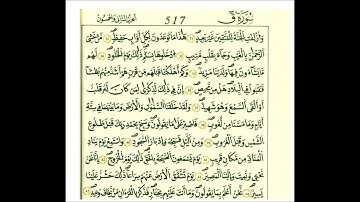 سُورَةُ ق
517
الحزب الثاني والخمسون
وَأُزْلِفَتِ الْجَنَّةُ لِلْمُتَّقِينَ غَيْرَ بَعِيدٍ ۝ هَٰذَا مَا تُوعَدُونَ لِكُلِّ أَوَّابٍ حَفِيظٍ ۝ مَّنْ خَشِيَ
الرَّحْمَٰنَ بِالْغَيْبِ وَجَاءَ بِقَلْبٍ مُّنِيبٍ ۝ ادْخُلُوهَا بِسَلَٰمٍ ذَٰلِكَ يَوْمُ الْخُلُودِ ۝ لَهُم
مَّا يَشَاءُونَ فِيهَا وَلَدَيْنَا مَزِيدٌ ۝ وَكَمْ أَهْلَكْنَا قَبْلَهُم مِّن قَرْنٍ هُمْ أَشَدُّ مِنْهُم بَطْشًا
فَنَقَّبُوا فِي الْبِلَٰدِ هَلْ مِن مَّحِيصٍ ۝ إِنَّ فِي ذَٰلِكَ لَذِكْرَىٰ لِمَن كَانَ لَهُ قَلْبٌ
أَوْ أَلْقَى السَّمْعَ وَهُوَ شَهِيدٌ ۝ وَلَقَدْ خَلَقْنَا السَّمَٰوَٰتِ وَالْأَرْضَ وَمَا بَيْنَهُمَا فِي سِتَّةِ
أَيَّامٍ وَمَا مَسَّنَا مِن لُّغُوبٍ ۝ فَاصْبِرْ عَلَىٰ مَا يَقُولُونَ وَسَبِّحْ بِحَمْدِ رَبِّكَ قَبْلَ طُلُوعِ
الشَّمْسِ وَقَبْلَ الْغُرُوبِ ۝ وَمِنَ الَّيْلِ فَسَبِّحْهُ وَأَدْبَٰرَ السُّجُودِ ۝ وَاسْتَمِعْ يَوْمَ يُنَادِ
الْمُنَادِ مِن مَّكَانٍ قَرِيبٍ ۝ يَوْمَ يَسْمَعُونَ الصَّيْحَةَ بِالْحَقِّ ذَٰلِكَ يَوْمُ الْخُرُوجِ ۝
إِنَّا نَحْنُ نُحْيِي وَنُمِيتُ وَإِلَيْنَا الْمَصِيرُ ۝ يَوْمَ تَشَقَّقُ الْأَرْضُ عَنْهُمْ سِرَاعًا ذَٰلِكَ حَشْرٌ عَلَيْنَا
يَسِيرٌ ۝ نَّحْنُ أَعْلَمُ بِمَا يَقُولُونَ وَمَا أَنتَ عَلَيْهِم بِجَبَّارٍ فَذَكِّرْ بِالْقُرْءَانِ مَن يَخَافُ وَعِيدِ